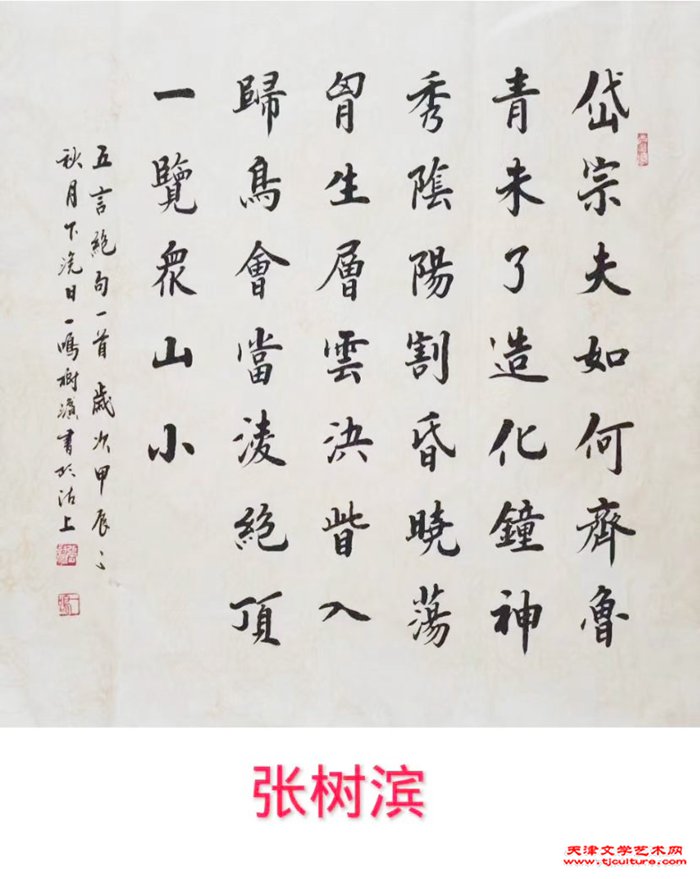 岱宗夫如何齊魯
青未了造化鐘神
秀陰陽割昏曉蕩
胷生層雲決眥入
歸鳥會當淩絕頂
一覽眾山小
五言絕句一首 歲次甲辰之
秋月下浣日一鳴樹濱書於沽上
张树滨
天津文学艺术网
www.tjculture.com